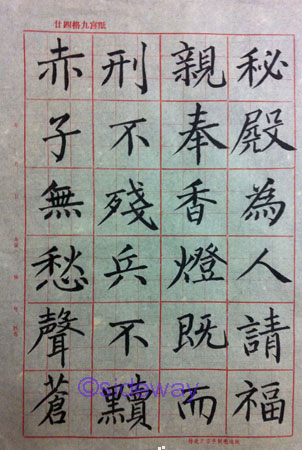 瓻宮九格四廿
秘殿為人請福
親奉香燈既而
刑不殘兵不黷
赤子無愁聲蒼
©sideway